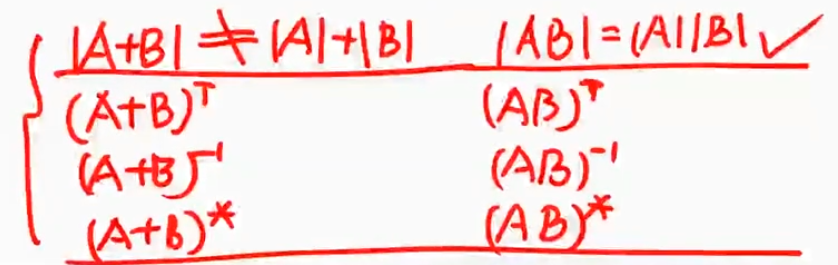 |A+B| ≠ |A|+|B| |AB|=|A||B| ✓
(A+B)ᵀ (AB)ᵀ
(A+B)⁻¹ (AB)⁻¹
(A+B)* (AB)*